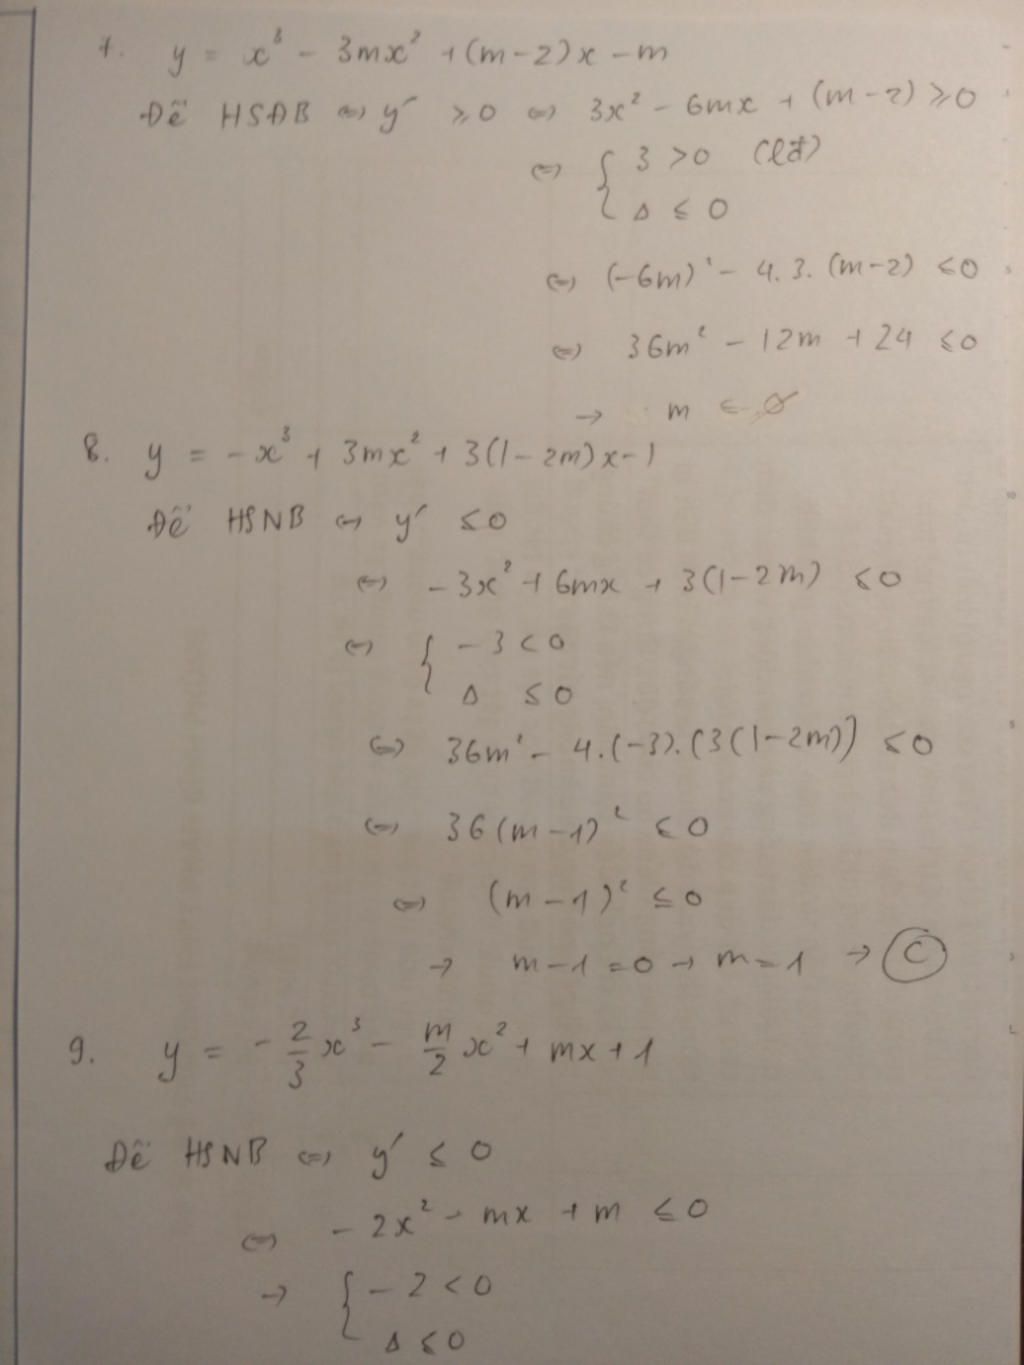 7. y = x³ - 3mx² + (m-2)x - m
Để HSĐB ⇔ y' ≥ 0 ⇔ 3x² - 6mx + (m-2) ≥ 0
⇔ { 3 > 0 (lđ)
Δ ≤ 0
⇔ (-6m)² - 4.3.(m-2) ≤ 0
⇔ 36m² - 12m + 24 ≤ 0
→ m ∈ ∅
8. y = -x³ + 3mx² + 3(1-2m)x - 1
Để HSNB ⇔ y' ≤ 0
⇔ -3x² + 6mx + 3(1-2m) ≤ 0
⇔ { -3 < 0
Δ ≤ 0
⇔ 36m² - 4.(-3).(3(1-2m)) ≤ 0
⇔ 36(m-1)² ≤ 0
⇔ (m-1)² ≤ 0
→ m-1 = 0 → m = 1 → C
9. y = -2/3x³ - m/2x² + mx + 1
Để HSNB ⇔ y' ≤ 0
⇔ -2x² - mx + m ≤ 0
→ { -2 < 0
Δ ≤ 0